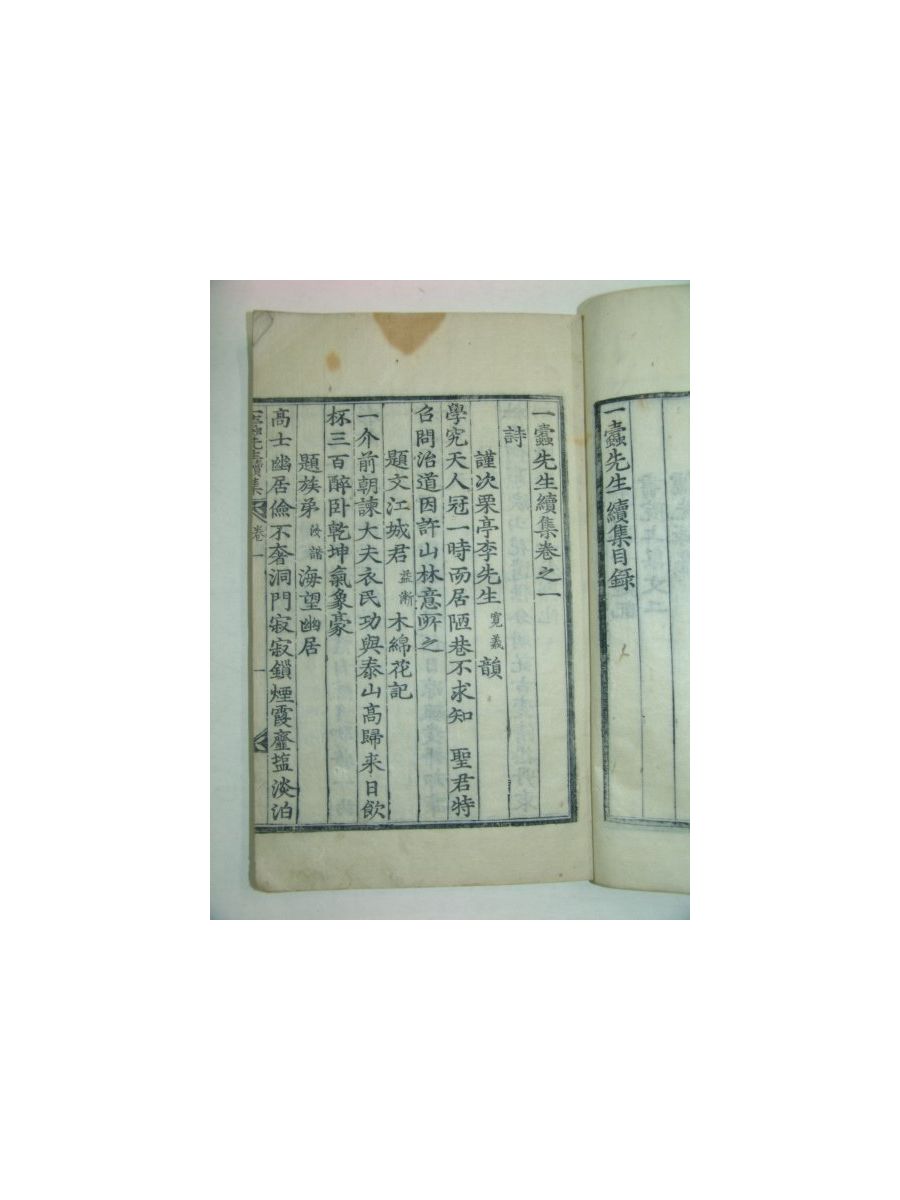 一蠹先生續集目録
一蠹先生續集卷之一
詩
謹次栗亭李先生寛義韻
學究天人冠一時而居陋巷不求知 聖君特
召問治道因許山林意所之
題文江城君益漸木綿花記
一介前朝諫大夫衣民功與泰山高歸来日飲
杯三百醉卧乾坤氣象豪
題族弟汝諧海望幽居
高士幽居儉不奢洞門寂寂鎖煙霞虀塩淡泊
一蠹先生續集 卷一 一